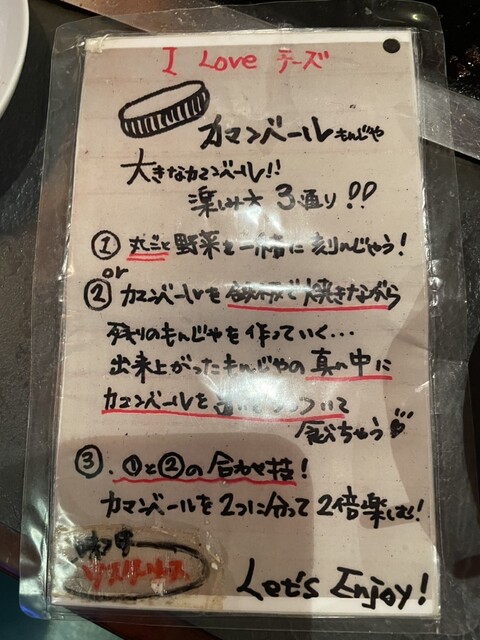 I Love チーズ
カマンベールもんじゃ
大きなカマンベール!!
楽しみ方 3通り!!
① 丸ごと野菜と一緒に刻んじゃう!
or
② カマンベールを鉄板で焼きながら
残りのもんじゃを作っていく…
出来上がったもんじゃの真ん中に
カマンベールを
食べちゃう
③. ①と②の合わせ技!
カマンベールを2つに分って2倍楽しむ!
味つけ
Let's Enjoy!